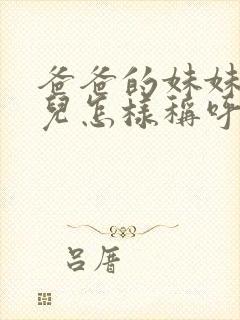 爸爸的妹妹
兒怎樣稱呼
呂厝